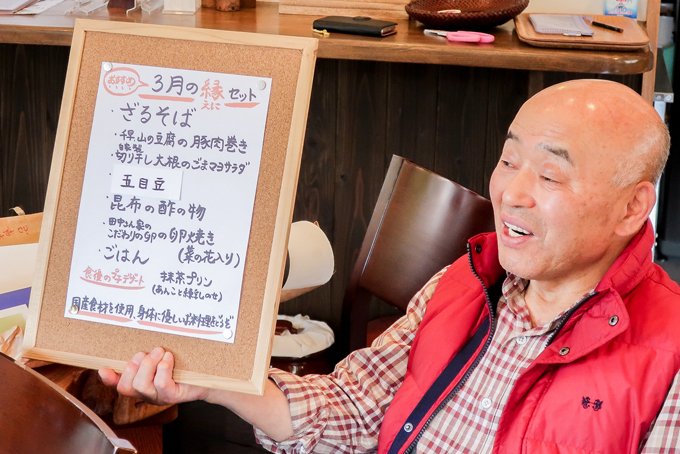 おすすめ 3月の縁セット
えに
・ざるそば
・千早山の豆腐の豚肉巻き
・切り干し大根のごまマヨサラダ
五目豆
・昆布の酢の物
・田中さん家の
こだわりの卵の卵焼き
(菜の花入り)
・ごはん
食後のプチデザート
抹茶プリン
(あんこと練乳のせ)
国産食材を使用、身体に優しいお料理をどうぞ